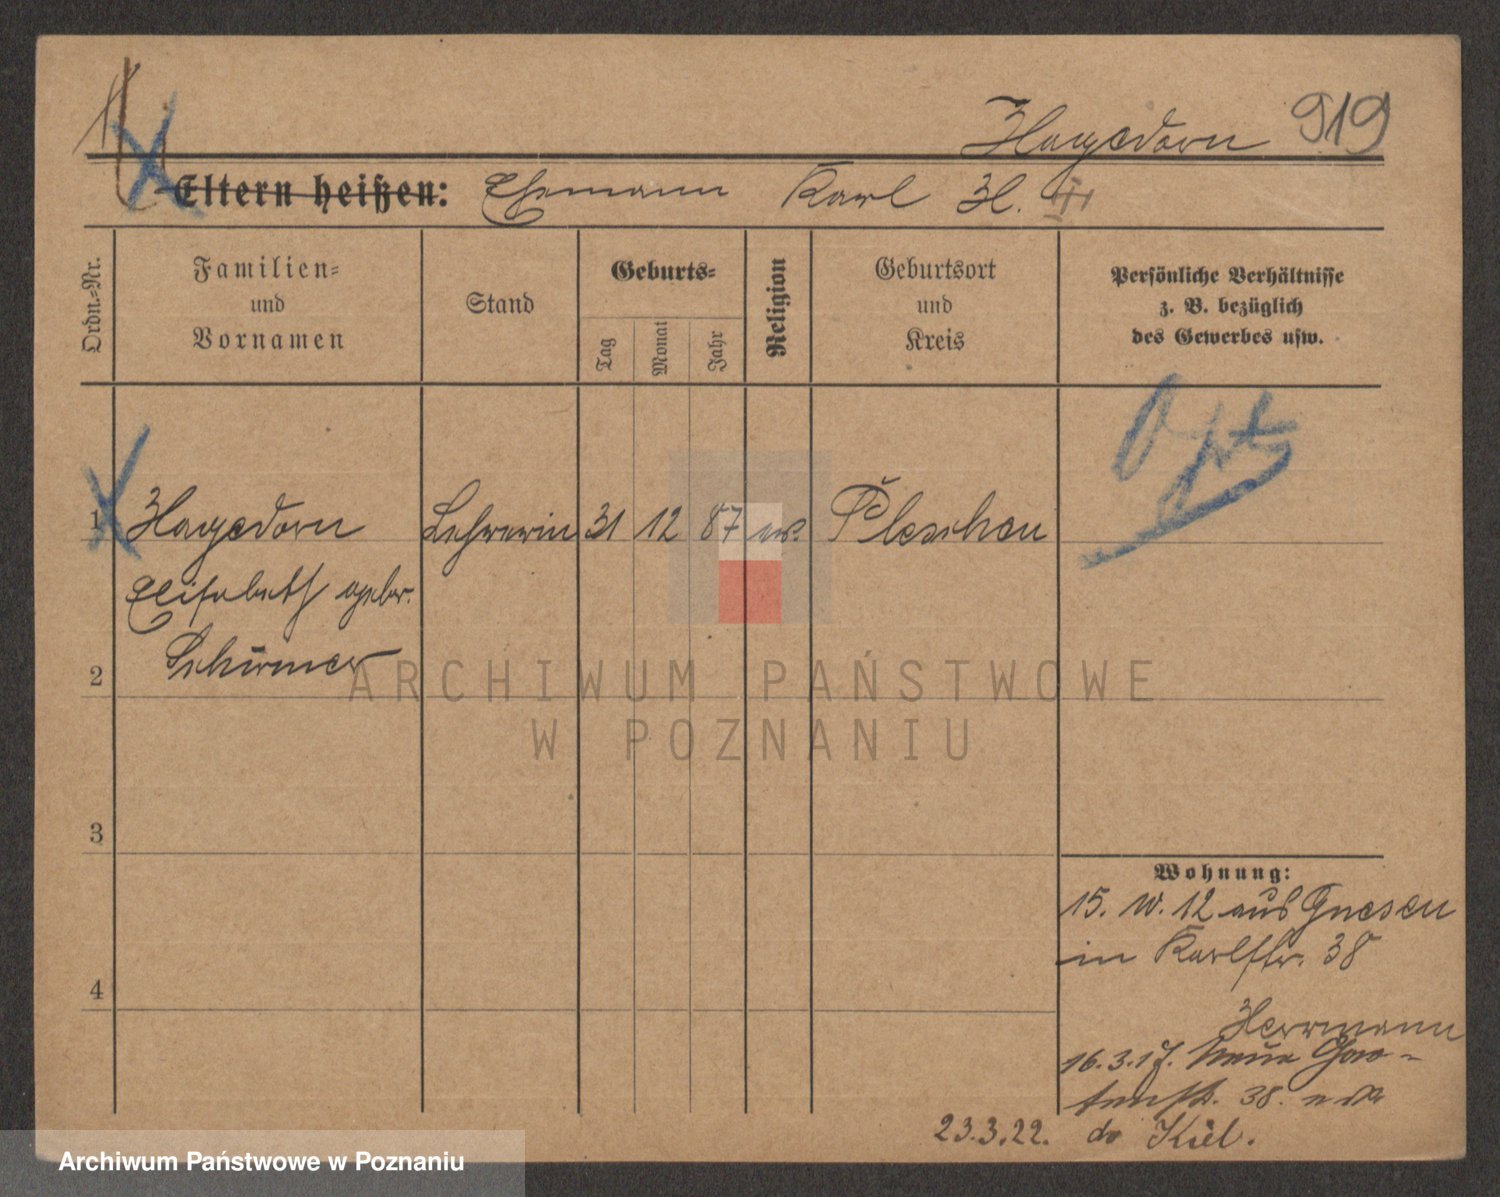 Hagedorn 919
Eltern heißen: Ehemann Karl H. III
Ordn.-Nr.
Familien-
und
Vornamen
Stand
Geburts-
Tag
Monat
Jahr
Religion
Geburtsort
und
Kreis
Persönliche Verhältnisse
z. B. bezüglich
des Gewerbes usw.
Opt
1 Hagedorn Lehrerin 31 12 87 ev. Pleschen
Elisabeth gebor.
Schirmer
2
3
4
Wohnung:
15. 10. 12 aus Gnesen
in Karlstr. 38
Herrmann
16.3.17. Neue Gar-
tenstr. 38.
23.3.22. do Kiel.
ARCHIWUM PAŃSTWOWE
W POZNANIU
Archiwum Państwowe w Poznaniu